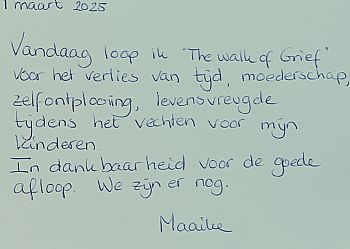 1 maart 2025
Vandaag loop ik "The walk of Grief"
voor het verlies van tijd, moederschap,
zelfontplooiing, levensvreugde
tijdens het vechten voor mijn
kinderen.
In dankbaarheid voor de goede
afloop. We zijn er nog.
Maaike